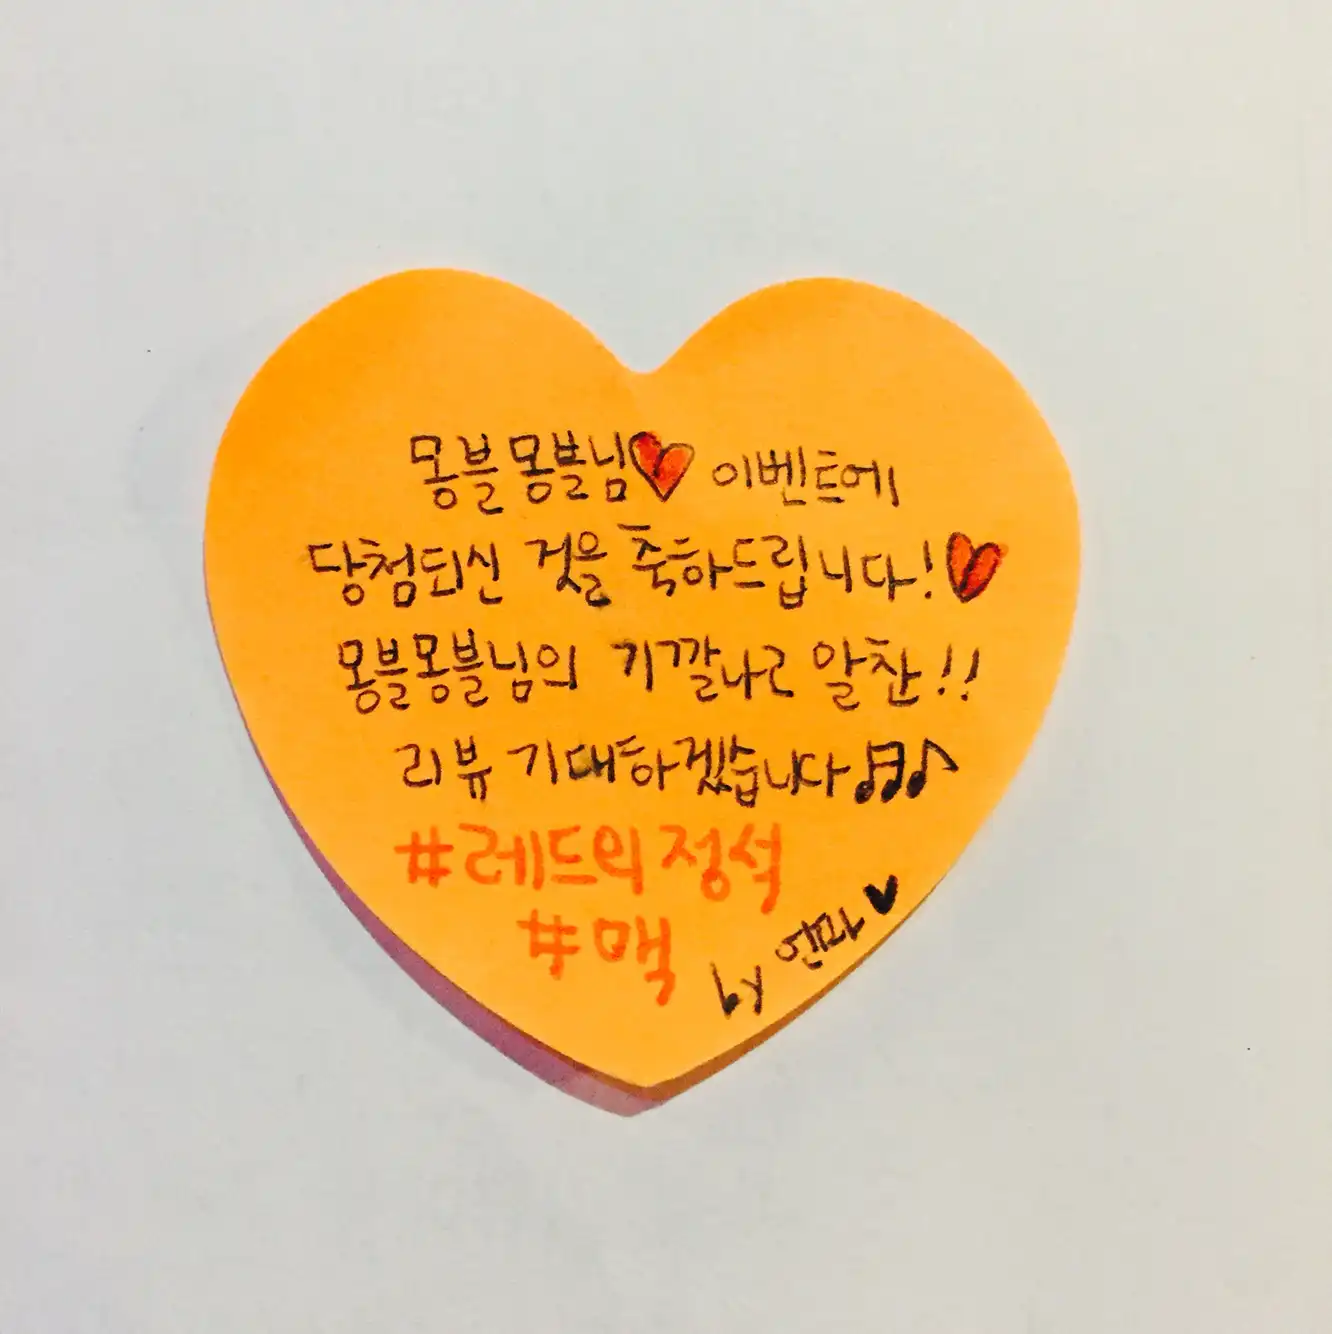 몽블몽블님♥ 이벤트에
당첨되신 것을 축하드립니다!♥
몽블몽블님의 기깔나고 알찬!!
리뷰 기대하겠습니다♬♪
#레드의 정석
#맥